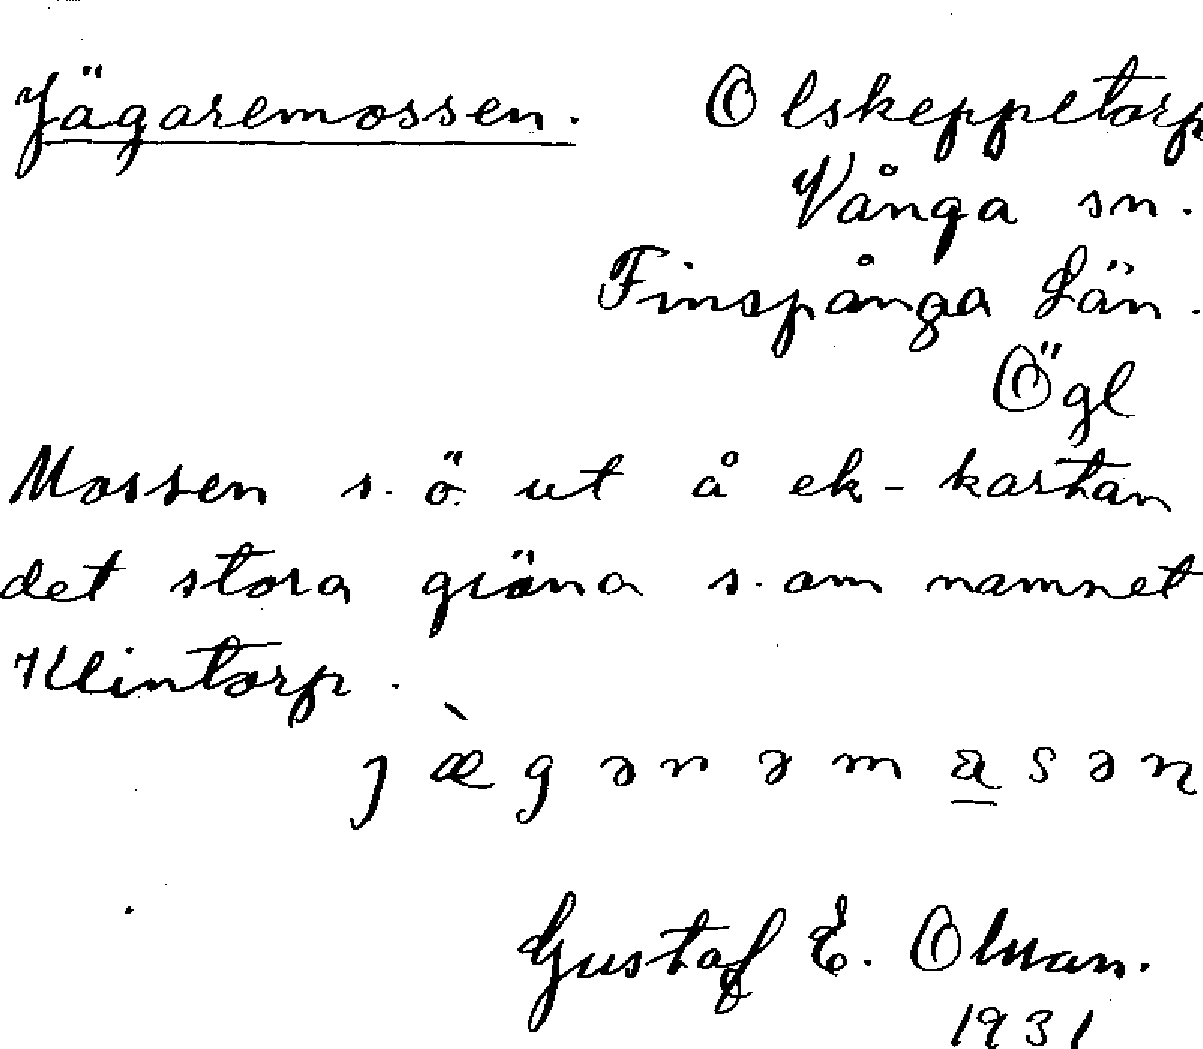 Jägaremossen. Olskeppetorp
Vånga sn.
Finspånga Län.
Ögl
Mossen s. ö. ut å ek-kartan
det stora gröna s. om namnet
Klintorp.
j æ̀ g ə r ə m a̲ s ə n
Gustaf E. Olsson.
1931